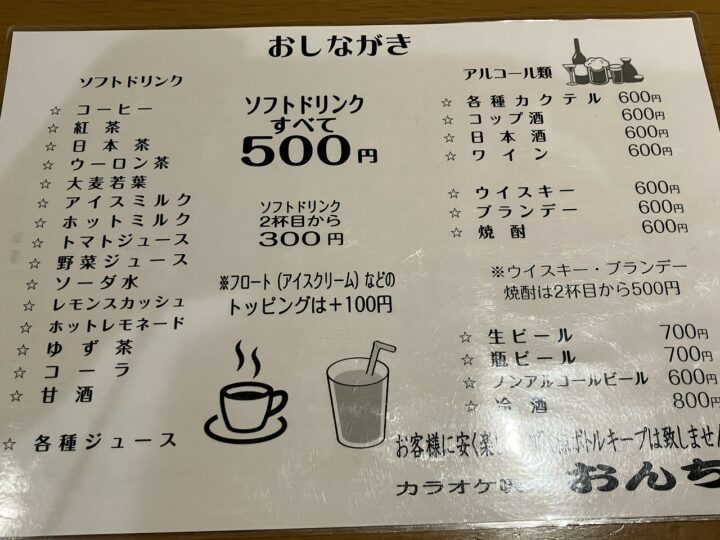 おしながき
ソフトドリンク
☆ コーヒー
☆ 紅茶
☆ 日本茶
☆ ウーロン茶
☆ 大麦若葉
☆ アイスミルク
☆ ホットミルク
☆ トマトジュース
☆ 野菜ジュース
☆ ソーダ水
☆ レモンスカッシュ
☆ ホットレモネード
☆ ゆず茶
☆ コーラ
☆ 甘酒
☆ 各種ジュース
ソフトドリンク
すべて
500円
ソフトドリンク
2杯目から
300円
※フロート(アイスクリーム)などの
トッピングは+100円
アルコール類
☆ 各種カクテル 600円
☆ コップ酒 600円
☆ 日本酒 600円
☆ ワイン 600円
☆ ウイスキー 600円
☆ ブランデー 600円
☆ 焼酎 600円
※ウイスキー・ブランデー
焼酎は2杯目から500円
☆ 生ビール 700円
☆ 瓶ビール 700円
☆ ノンアルコールビール 600円
☆ 冷酒 800円
お客様に安く楽 ボトルキープは致しません
カラオケ おんち